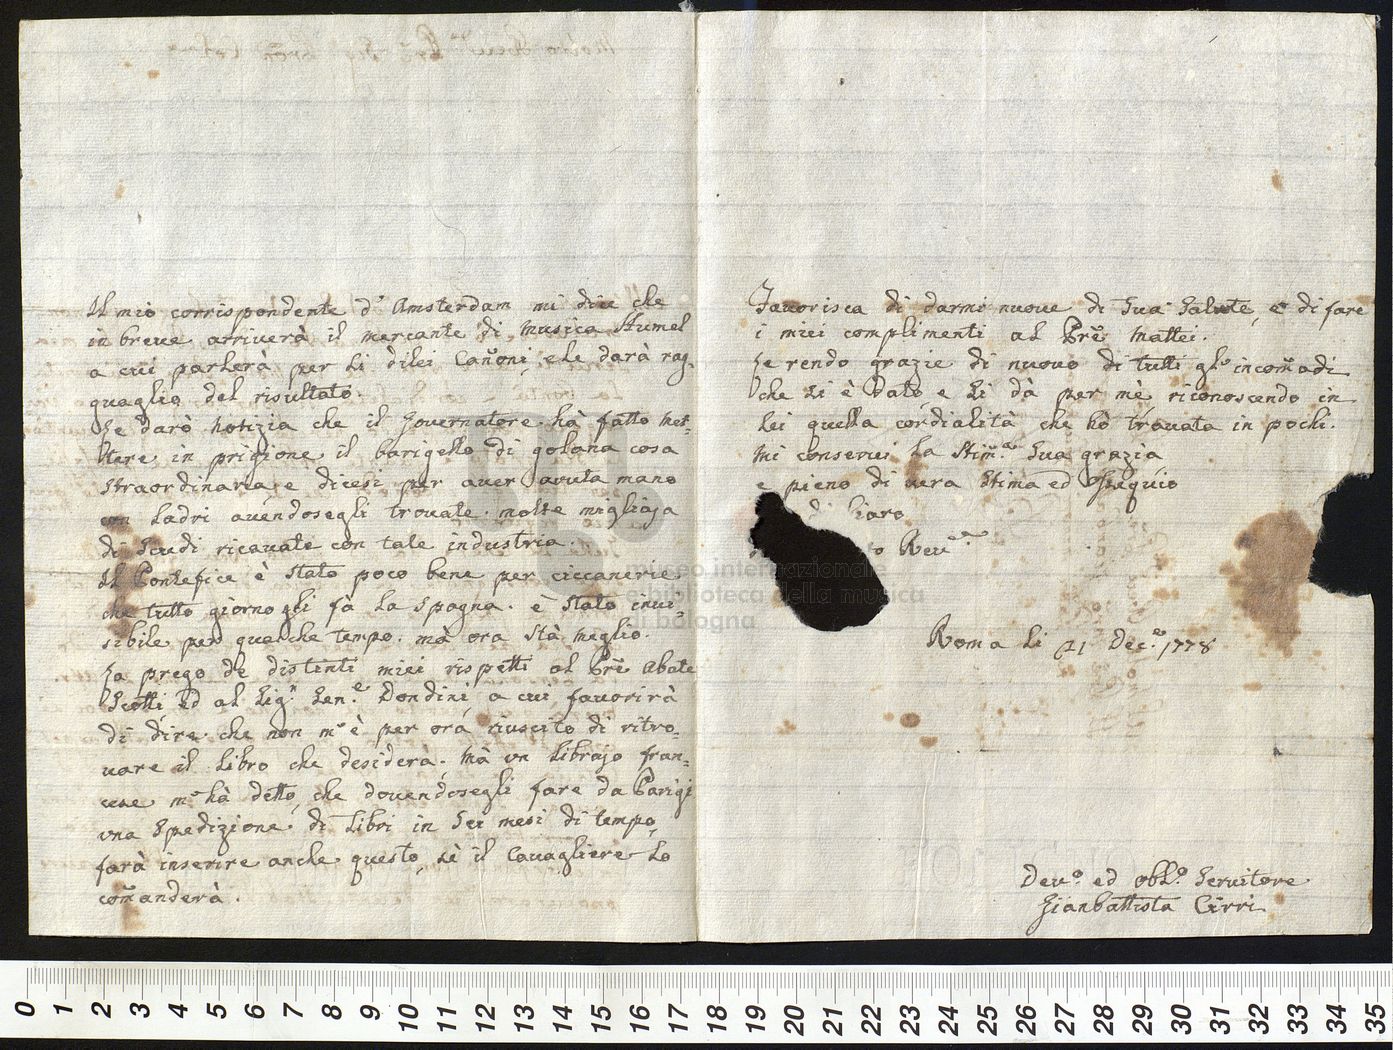 Il mio corrispondente d'Amsterdam mi dice che
in breve arriverà il mercante di Musica Humel
a cui parlerà per li dilei Cañoni, e le darà rag-
guaglio del risultato.
Le darò notizia che il Governatore hà fatto met-
tere in prigione il barigello di golana cosa
straordinaria e dicesi per aver avuta mano
con Ladri avendosegli trovate molte migliaja
di Scudi ricavate con tale industria.
Il Pontefice è stato poco bene per ciccanerie
che tutto giorno gli fà la Spagna. è stato invi-
sibile per qualche tempo. mà ora stà meglio.
La prego de distenti miei rispetti al Prē Abate
Scotti ed al Sig.r Sen.e Dondini, a cui favorirà
di dire che non m'è per ora riuscito di ritro-
vare il Libro che desidera. Mà un Librajo fran-
cese m'hà detto, che dovendosegli fare da Parigi
una Spedizione di Libri in sei mesi di tempo,
farà inserire anche questo, sè il Cavagliere lo
com̃anderà.
Favorisca di darmi nuove di Sua Salute, e di fare
i miei complimenti al Prē Mattei.
Le rendo grazie di nuovo di tutti gl'incom̃adi
che Li è Dato e Li dà per mè, riconoscendo in
Lei quella cordialità che hò trovata in pochi.
Mi conservi la Stim.a Sua grazia
e pieno di vera Stima ed Ossequio
di
Rev.
Roma li 21 Dec.e 1778
Dev.o ed obb.o Servitore
Gianbattista Cirri
museo internazionale
e biblioteca della musica
di bologna
0 1 2 3 4 5 6 7 8 9 10 11 12 13 14 15 16 17 18 19 20 21 22 23 24 25 26 27 28 29 30 31 32 33 34 35